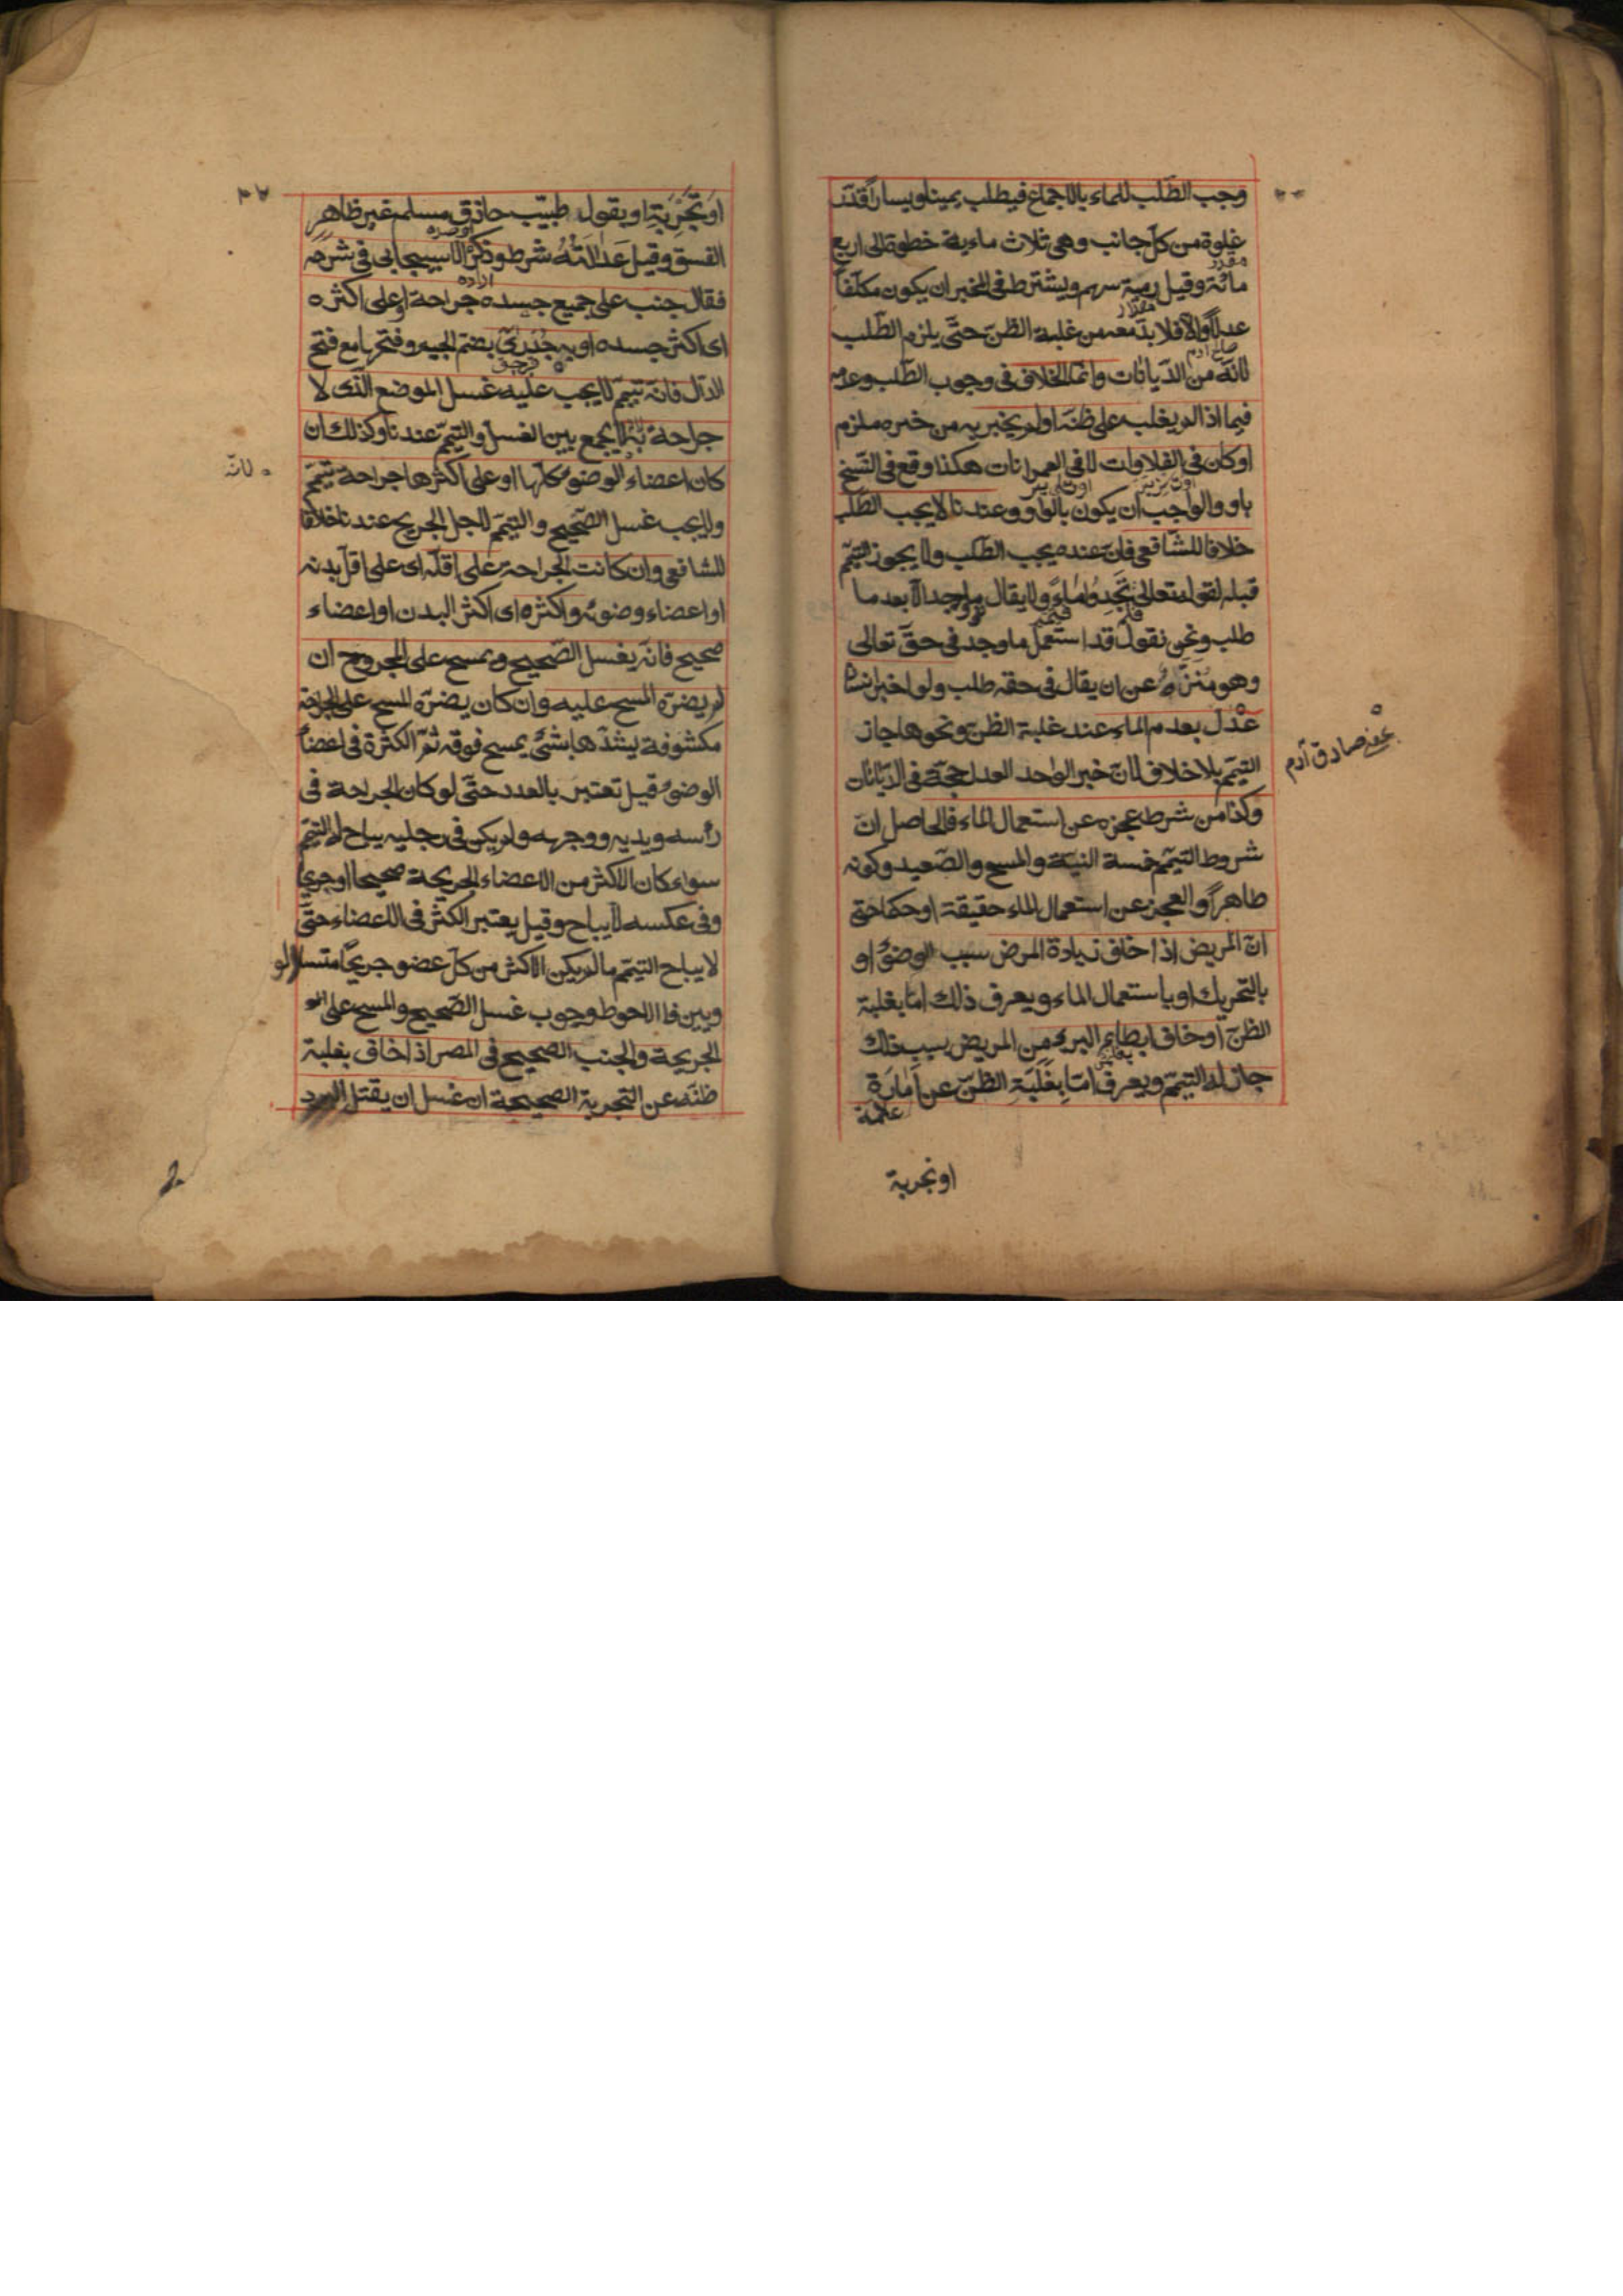 وجب الطّلب للماء بالاجماع فيطلب يمينا ويسارا قدر
غلوة من كلّ جانب وهي ثلاث ماءية خطوة الى اربع
مائة وقيل رمية سهم ويشترط فى المخبر ان يكون مكلّفا
عدلاً والّا فلا بدّ معه من غلبة الظنّ حتّى يلزم الطّلب
لانّه من الدّيانات وانّما الخلاف فى وجوب الطّلب وعدمه
فيما اذا لم يغلب على ظنّه او لم يخبر به من خبره ملزم
او كان فى الفلاوات لا فى العمرانات هكذا وقع فى النّسخ
باو والواجب ان يكون بالواو وعندنا لا يجب الطّلب
خلافا للشّافعى فانّ عنده يجب الطّلب ولا يجوز التيمّم
قبله لقوله تعالى تَجِدُوا مَاءً ولا يقال ما وجد الّا بعد ما
طلب ونحن نقول قد استعمل ما وجد فى حقّ تعالى
وهو منزّه عن ان يقال فى حقه طلب ولو اخبر انسان
عدل بعدم الماء عند غلبة الظنّ ونحوها جاز
التيمّم بلا خلاف لانّ خبر الواحد العدل حجّة فى الدّيانات
وكذا من شرط عجزه عن استعمال الماء فالحاصل انّ
شروط التيمّم خمسة النيّة والمسح والصّعيد وكونه
طاهراً والعجز عن استعمال الماء حقيقة او حكما حتى
انّ المريض اذا خاف زيادة المرض سبب الوضوء او
بالتّحريك او باستعمال الماء ويعرف ذلك امّا بغلبة
الظنّ او خاف ابطاء البرء من المريض بسبب ذلك
جاز له التيمّم ويعرف امّا بِغَلَبَةِ الظنّ عن اَمَارَة
علامة
او تجربة
صادق آدم
اَوْ تَجْرِبَةٍ او يقول طبيب حاذق مسلم غير ظاهر
الفسق وقيل عَدَالَتُهُ شرط وذكر الاسبيجابى فى شرحه
فقال جنب على جميع جسده جراحة او على اكثره
اى اكثر جسده او به جُدَرِىّ بضم الجيم وفتحها مع فتح
الدّال فانّه تيمّم لا يجب عليه غسل الموضع الّذى لا
جراحة به لا يجمع بين الغسل والتيمّم عندنا وكذلك ان
كان اعضاء الوضوء كلّها او على اكثرها جراحة تيمّم
ولا يجب غسل الصّحيح والتيمّم لاجل الجريح عندنا خلافا
للشافعى وان كانت الجراحة على اقلّه اى على اقلّ بدنه
او اعضاء وضوئه واكثره اى اكثر البدن او اعضاء
صحيح فانّه يغسل الصّحيح ويمسح على المجروح ان
لم يضرّه المسح عليه وان كان يضرّه المسح على الجراحة
مكشوفة يشدّها بشئ يمسح فوقه ثمّ الكثرة فى اعضاء
الوضوء قيل تعتبر بالعدد حتّى لو كان الجراحة فى
رأسه ويديه ووجهه ولم يكن فى رجليه يباح له التيمّم
سواء كان الاكثر من الاعضاء الجريحة صحيحا او جريحا
وفى عكسه لا يباح وقيل يعتبر الكثر فى الاعضاء حتّى
لا يباح التيمّم ما لم يكن الاكثر من كلّ عضو جريحا
فالاحوط وجوب غسل الصّحيح والمسح على
الجريحة والجنب الصحيح فى المصر اذا خاف بغلبة
ظنّه عن التّجربة الصحيحة ان غسل ان يقتل البرد
لانّه